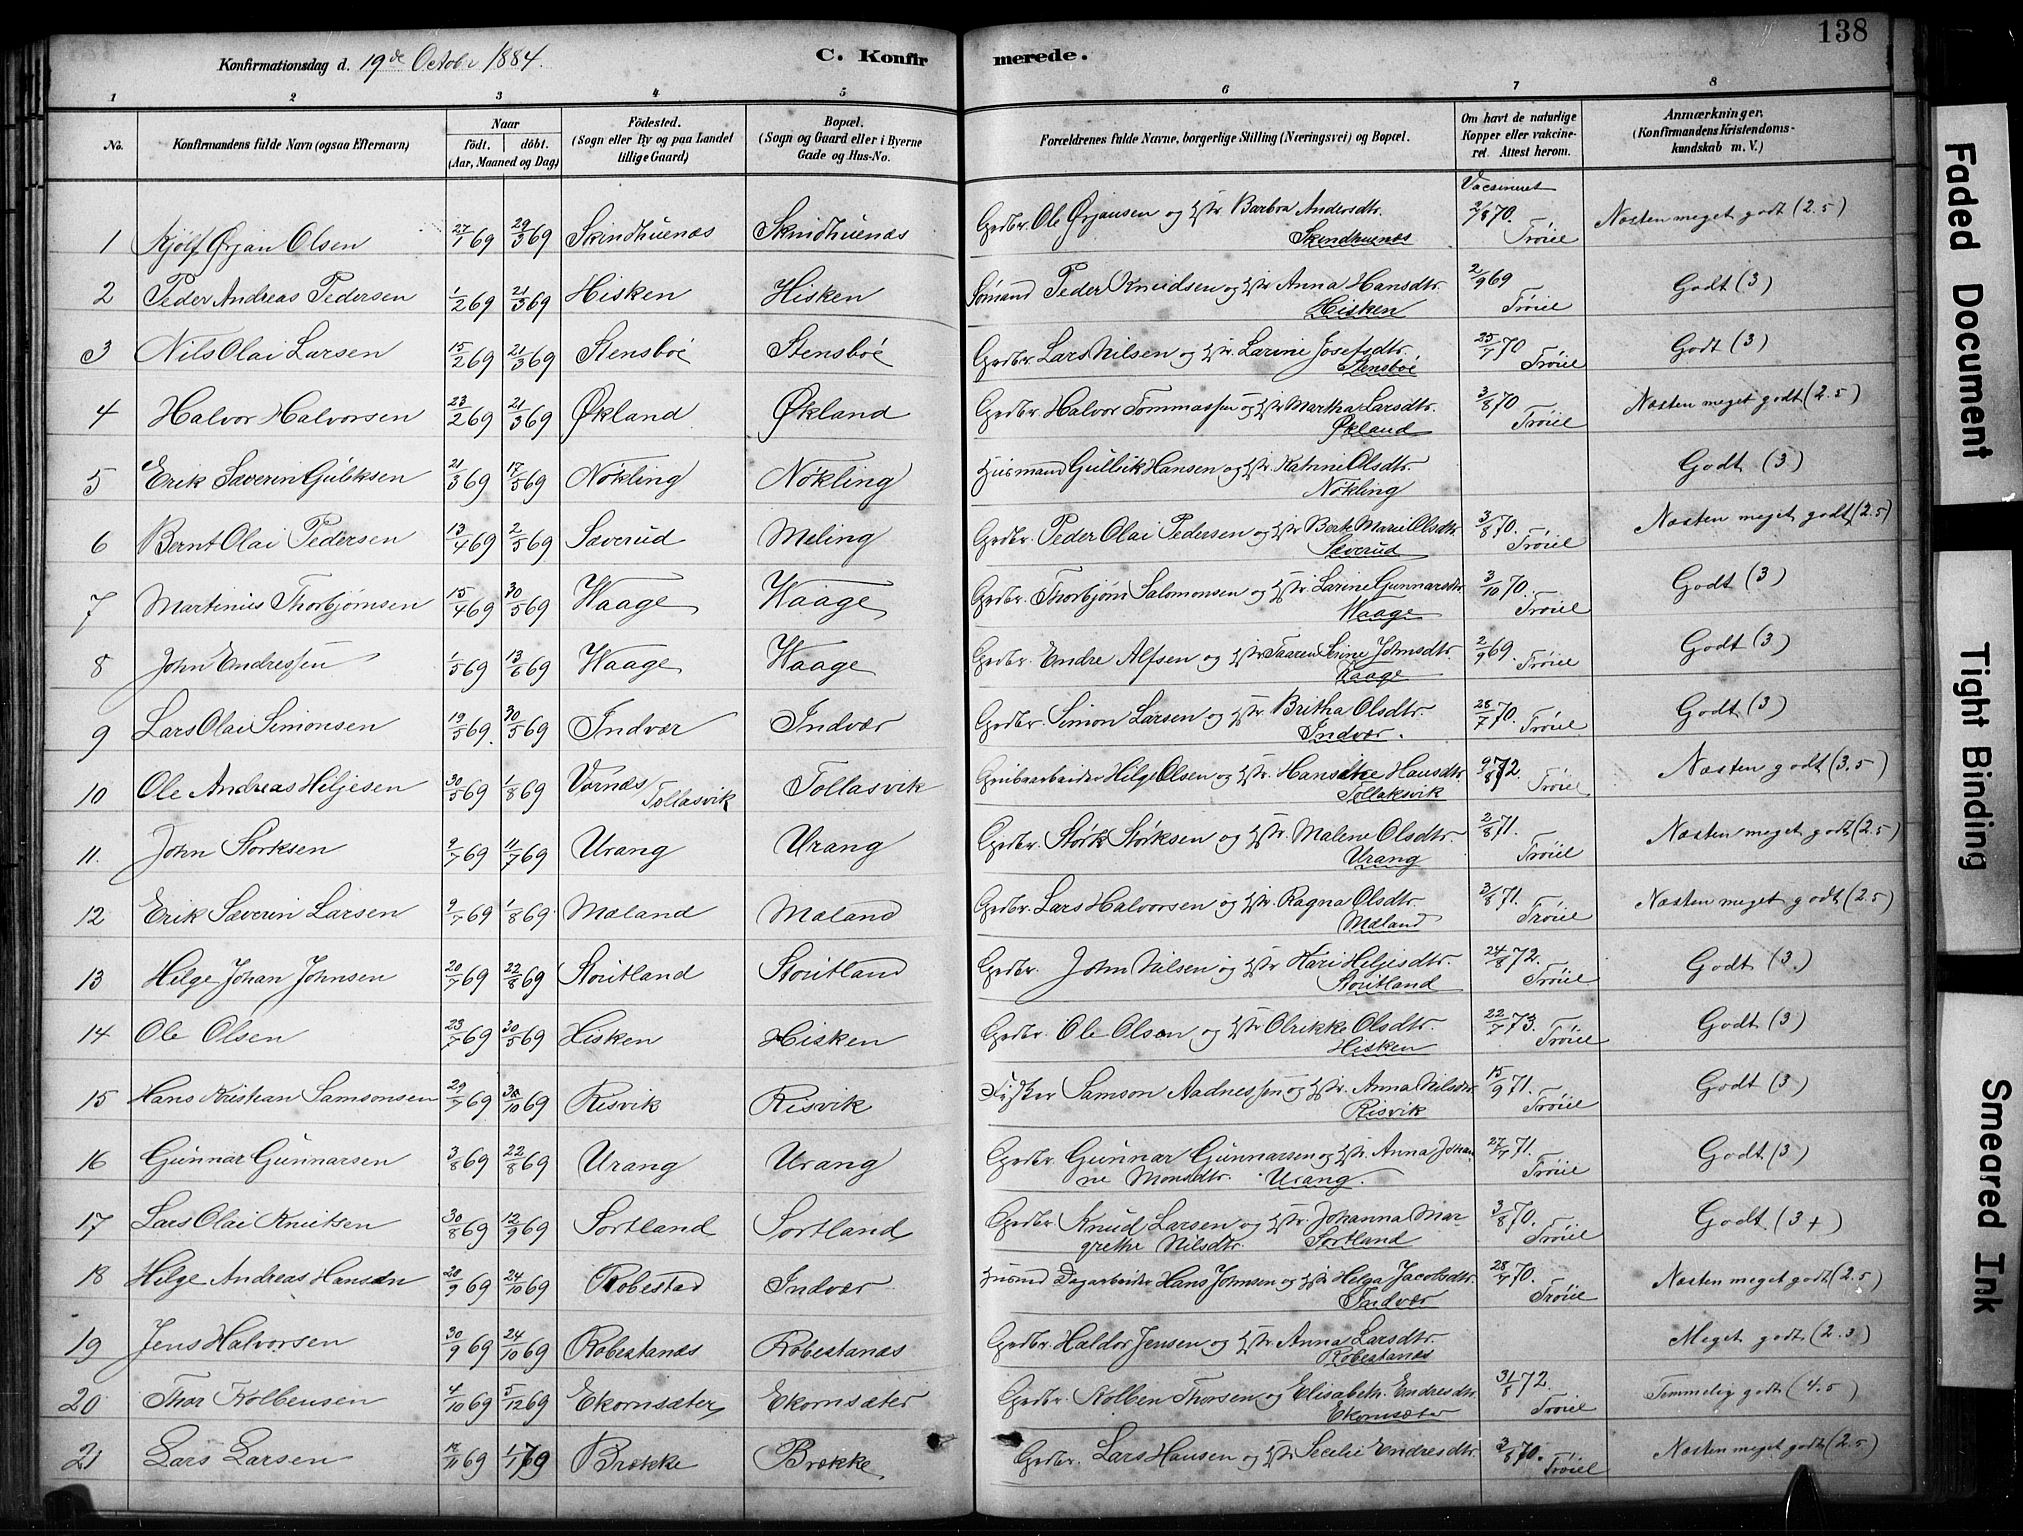 138
Konfirmationsdag d. 19de Octobr 1884.
C. Konfirmerede.
1 2 3 4 5 6 7 8
No. Konfirmandens fulde Navn (ogsaa Efternavn) Naar födt. döbt. (Aar, Maaned og Dag) Födested. (Sogn eller By og paa Landet tillige Gaard) Bopæl. (Sogn og Gaard eller i Byerne Gade og Hus-No. Forældrenes fulde Navne, borgerlige Stilling (Næringsvei) og Bopæl. Om havt de naturlige Kopper eller vakcineret. Attest herom. Anmærkninger. (Konfirmandens Kristendomskundskab m. V.)
Vacsineret
1 Kjølf Ørjan Olsen 27/1 69 29/3 69 Skindhuenæs Skindhuenæs Grdbr. Ole Ørjansen og Hstr. Barbra Andersdtr. Skindhuenæs 2/8 70. Trøiel Næsten meget godt (2.5)
2 Peder Andreas Pedersen 1/2 69 21/3 69 Hisken Hisken Sømand Peder Knudsen og Hstr Anna Hansdtr. Hisken 2/9 69 Trøiel Godt (3)
3 Nils Olai Larsen 15/2 69 21/3 69 Stensböe Stensböe Grdbr. Lars Nilsen og Hstr. Larine Josefsdtr. Stensböe 25/7 70 Trøiel Godt (3)
4 Halvor Halvorsen 23/2 69 21/3 69 Økland Økland Grdbr. Halvor Tommassen og Hstr Martha Larsdtr. Økland 3/8 70 Trøiel Næsten meget godt (2.5)
5 Erik Sæverin Gulliksen 21/3 69 17/5 69 Nökling Nökling Husmand Gullik Hansen og Hstr. Katrine Olsdtr. Nökling Godt (3)
6 Bernt Olai Pedersen 13/4 69 2/5 69 Sæverud Meling Grdbr. Peder Olai Pedersen og Hstr Berte Marie Olsdtr. Sæverud 3/8 70. Trøiel Næsten meget godt (2.5)
7 Martinus Thorbjørnsen 15/4 69 30/5 69 Waage Waage Grdbr. Thorbjørn Salomonsen og Hstr. Larine Gunnarsdtr. Waage 3/10 70. Trøiel Godt (3)
8 John Endressen 1/5 69 13/6 69 Waage Waage Grdbr. Endre Alfsen og Hstr. Taaren Serine Johnsdtr. Waage 2/9 69. Trøiel Godt (3)
9 Lars Olai Simonsen 19/5 69. 30/5 69 Indvær Indvær Grdbr. Simon Larsen og Hstr. Britha Olsdtr. Indvær. 28/7 70. Trøiel Godt (3)
10 Ole Andreas Hiljesen 30/5 69 1/8 69 Vornæs Tollasvik Tollasvik Grubearbeider Hilge Olsen og Hstr. Hansdtr. Tollaksvik 72. Trøiel Næsten godt (3.5)
11. John Störksen 9/7 69 11/7 69 Urang Urang Grdbr. Störk Störksen og Hstr. Malene Olsdtr. Urang 2/8 71. Trøiel Næsten meget godt (2.5)
12 Erik Sæverin Larsen 9/7 69 1/8 69. Mæland Mæland Grdbr. Lars Halvorsen og Hstr. Ragna Olsdtr. Mæland 3/8 71. Trøiel Næsten meget godt (2.5)
13 Hilge Johan Johnsen 20/7 69 22/8 69 Stoutland Stoutland Grdbr. John Nilsen og Hstr Kari Hiljesdtr. Stoutland 24/8 72. Trøiel Godt (3)
14 Ole Olsen 23/7 69 30/5 69 Hisken Hisken Grdbr. Ole Olsen og Hstr Olrikke Olsdtr. Hisken 22/7 73. Trøiel Godt (3)
15 Hans Kristian Samsonsen 29/7 69 /10 69 Risvik Risvik Fisker Samson Aadnessen og Hstr. Anna Nilsdtr. Risvik 15/9 71. Trøiel Godt (3)
16 Gunnar Gunnarsen 3/8 69 22/8 69 Urang Urang Grdbr. Gunnar Gunnarsen og Hstr. Anna Johanne Monsdtr. Urang. 27/7 71. Trøiel Godt (3)
17 Lars Olai Knutsen 30/8 69 12/9 69 Sortland Sortland Grdbr Knud Larsen og Hstr Johanna Margrethe Nilsdtr. Sortland 3/8 70. Trøiel Godt (3+)
18 Hilge Andreas Hansen 20/9 69 24/10 69 Robestad Indvær Husmd Dagarbeider Hans Johnsen og Hstr Helga Jacobsdtr. Indvær 28/7 70. Trøiel Næsten meget godt (2.5)
19 Jens Halvorsen 30/9 69 24/10 69 Robestanæs Robestanæs Grdbr. Haldor Jensen og Hstr Anna Larsdtr. Robestanæs Meget godt (2.3)
20 Thor Kolbensen 4/10 69 5/12 69 Ekornsæter Ekornsæter Grdbr. Kolben Thorsen og Elisabeth. Endresdtr Ekornsæter 31/8 72. Trøiel Temmelig godt (4.5)
21 Lars Larsen 18/11 69 1/1 70 Brække Brække Grdbr. Lars Hansen og Hstr Secelie Endresdtr. 3/8 70. Trøiel Næsten meget godt (2.5)
Faded Document
Tight Binding
Smeared Ink